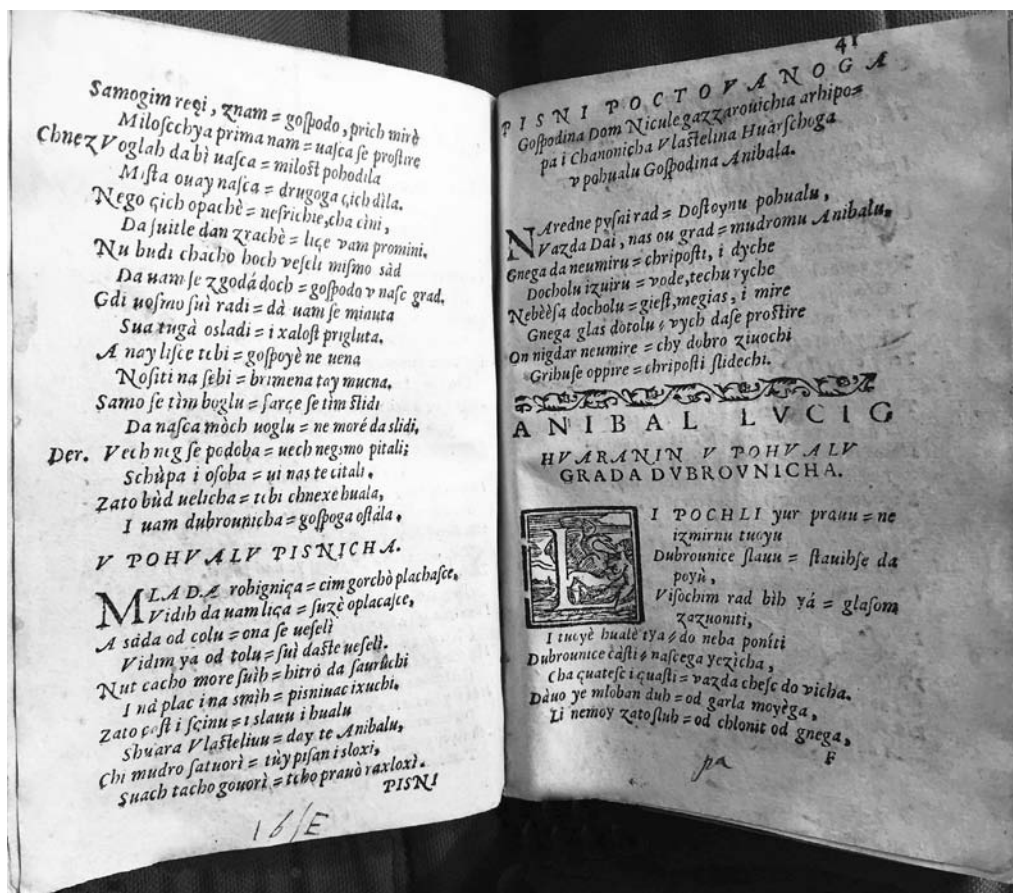 Samogim reçi, znam = goſpodo, prich mirè
Miloſcchya prima nam = uaſca ſe proſtire
Chnez Voglah da bì uaſca = miloſt pohodila
Miſta ouay naſca = drugoga çich dìla.
Nego çich opachè = neſrichie, cha cìni,
Da ſuitle dan zrachè = liçe vam promini.
Nu budi chacho hoch veſeli miſmo sàd
Da nam ſe zgodá doch = goſpodo v naſc grad.
Gdi uoſmo ſuì radi = dà uam ſe minuta
Sua tugà osladi = i xaloſt prigluta.
A nay liſce tebi = goſpoyè ne uena
Noſiti na ſebi = brimena tay mucna.
Samo ſe tìm boglu = ſarçe ſe tìm ſlidi
Da naſca mòch uoglu = ne moré da slidi,
Der. Vech neg ſe podoba = uech negsmo pitali;
Schùpa i oſoba = ui nas te citali.
Zato bùd uelicha = tebi chnexe huala,
I uam dubrounicha = goſpoga oſtála.
V POHVALV PISNICHA.
MLADA robigniça = cim gorchò plachaſce,
Vidih da uam liça = ſuzè oplacaſce,
A sàda od colu = ona ſe ueſelì
Vidim ya od tolu = ſuì daſte ueſelì.
Nut cacho more ſuìh = hitrò da ſaurûchi
I nà plac i na smìh = pisniuac ixuchi.
Zato çaſt i ſcinu = i slauu i hualu
Shuara Vlaſteliuu = day te Anibalu,
Chi mudro ſatuorì = tùy piſan i sloxi,
Suach tacho gouorì = tcho prauò raxloxì.
PISNI
16/E
41
PISNI POCTOVANOGA
Goſpodina Dom Nicule gazzarouichia arhipo=
pa i Chanonicha Vlaſtelina Huarſchoga
v pohualu Goſpodina Anibala.
NAredne pyſni rad = Doſtoynu pohualu,
Vazda Dai, nas ou grad = mudromu Anibalu,
Gnega da neumiru = chripoſti, i dyche
Docholu izuiru = vode, techu ryche
Nebèèſa docholu = gieſt, megias, i mire
Gnega glas dotolu = vych daſe proſtire
On nigdar neumire = chy dobro ziuochi
Grihuſe oppire = chripoſti ſlidechi.
ANIBAL LVCIG
HVARANIN V POHVALV
GRADA DVBROVNICHA.
I POCHLI yur prauu = ne
izmirnu tuoyu
Dubrounice slauu = ſtauihſe da
poyù,
Viſochim rad bìh yá = glaſom
zazuoniti,
I tuoyè hualè tya = do neba poníti
Dubrounice càſti = naſcega yezìcha,
Cha quateſc i quaſti = vazda cheſc do vicha.
Dàuo ye mloban duh = od garla moyèga,
Li nemoy zato ſluh = od chlonit od gnega,
F
pa